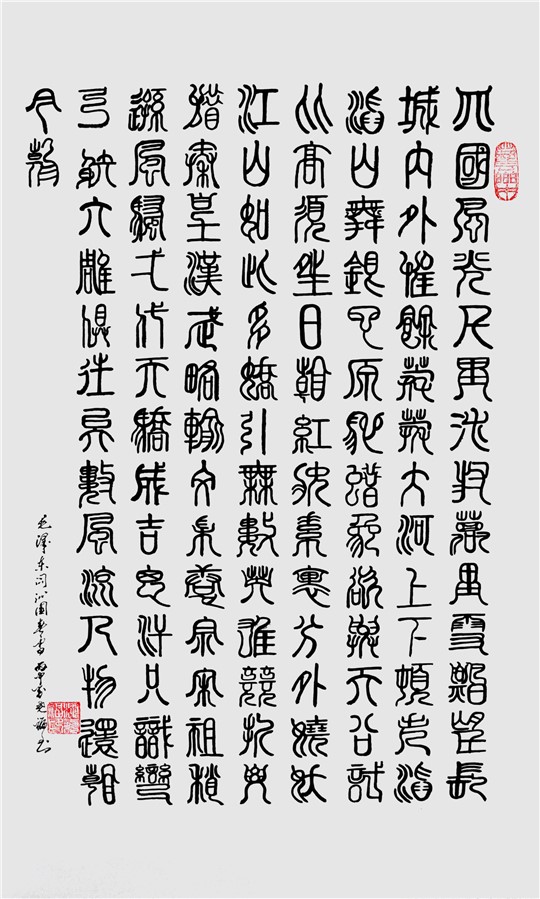 北國風光千里冰封萬里雪飄望長
城內外惟餘莽莽大河上下頓失滔
滔山舞銀蛇原馳蠟象欲與天公試
比高須晴日看紅妝素裹分外嬈妖
江山如此多嬌引無數英雄競折腰
惜秦皇漢武略輸文采唐宗宋祖稍
遜風騷弌代天驕成吉思汗只識彎
弓射大雕俱往矣數風流人物還看
今朝
毛澤東詞沁園春雪 丙申